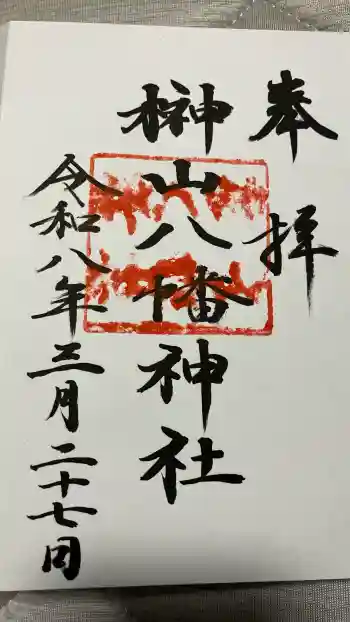 奉拝
榊山八幡神社
令和八年三月二十七日